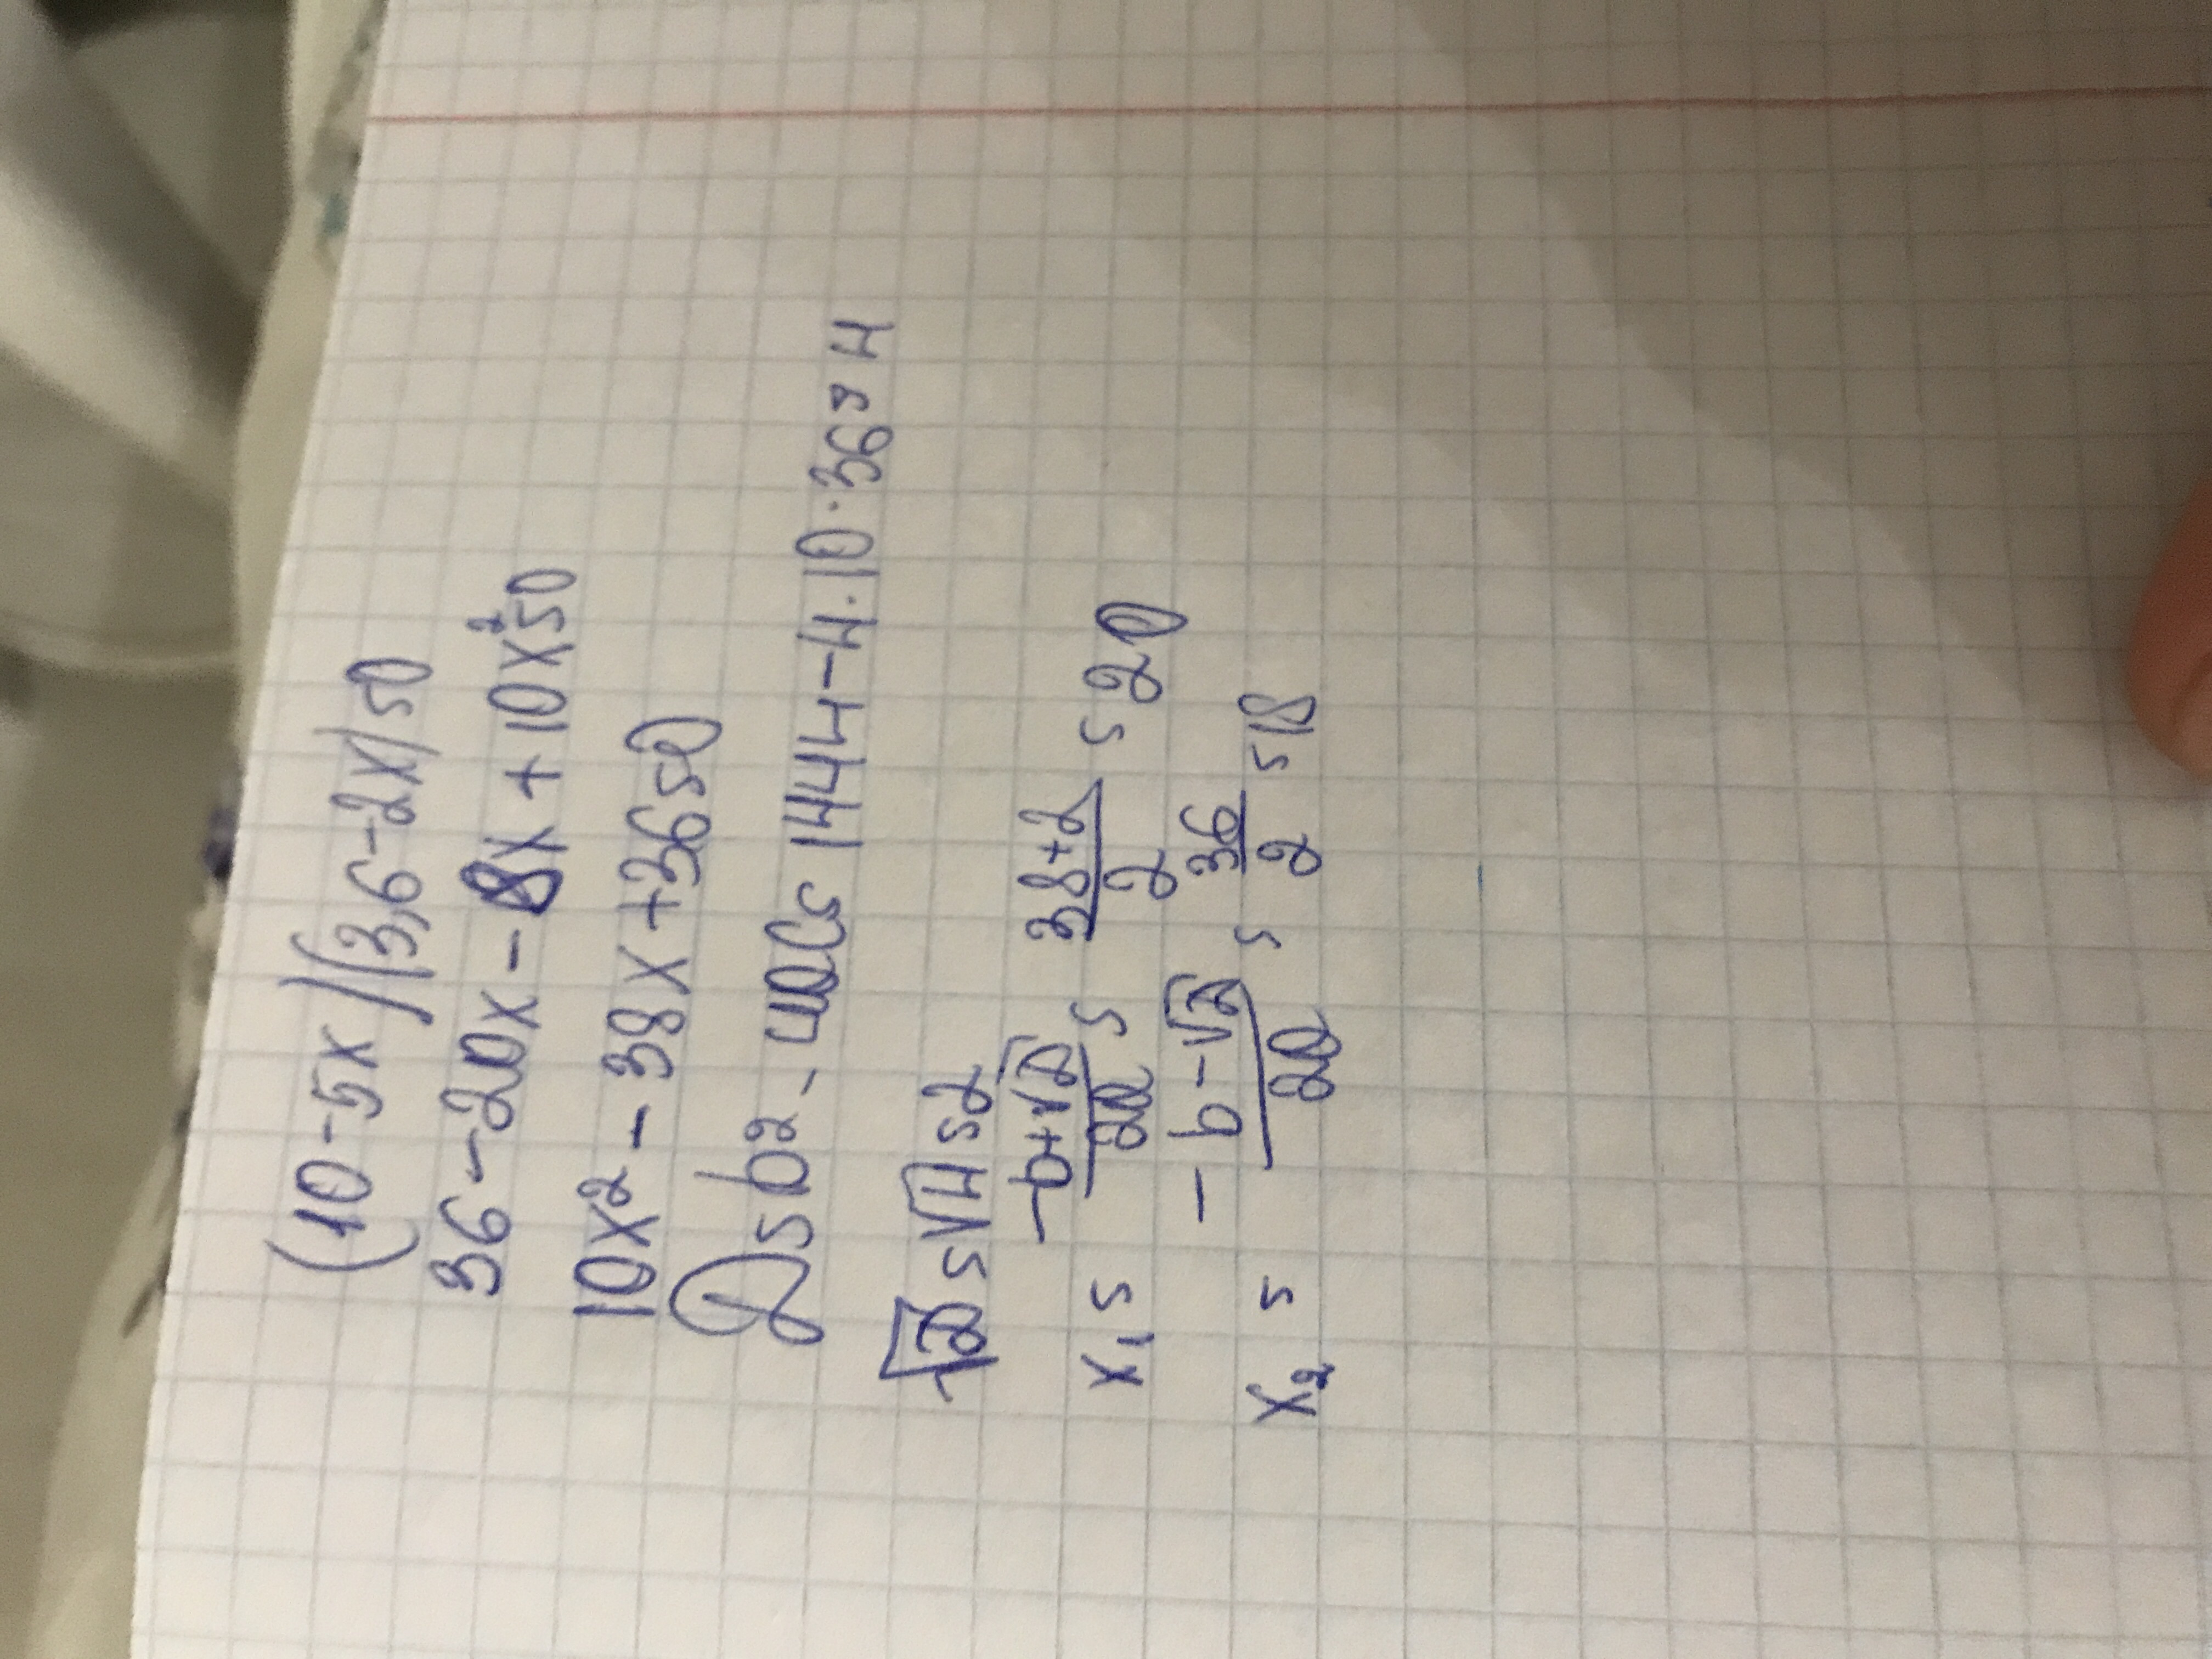 (10-5x)(3,6-2x)=0
36-20x-8x+10x²=0
10x²-38x+36=0
D=b²-4ac=1444-4·10·36=4
√D=√4=2
x₁= (-b+√D)/2a = (38+2)/2 = 20
x₂= (-b-√D)/2a = 36/2 = 18